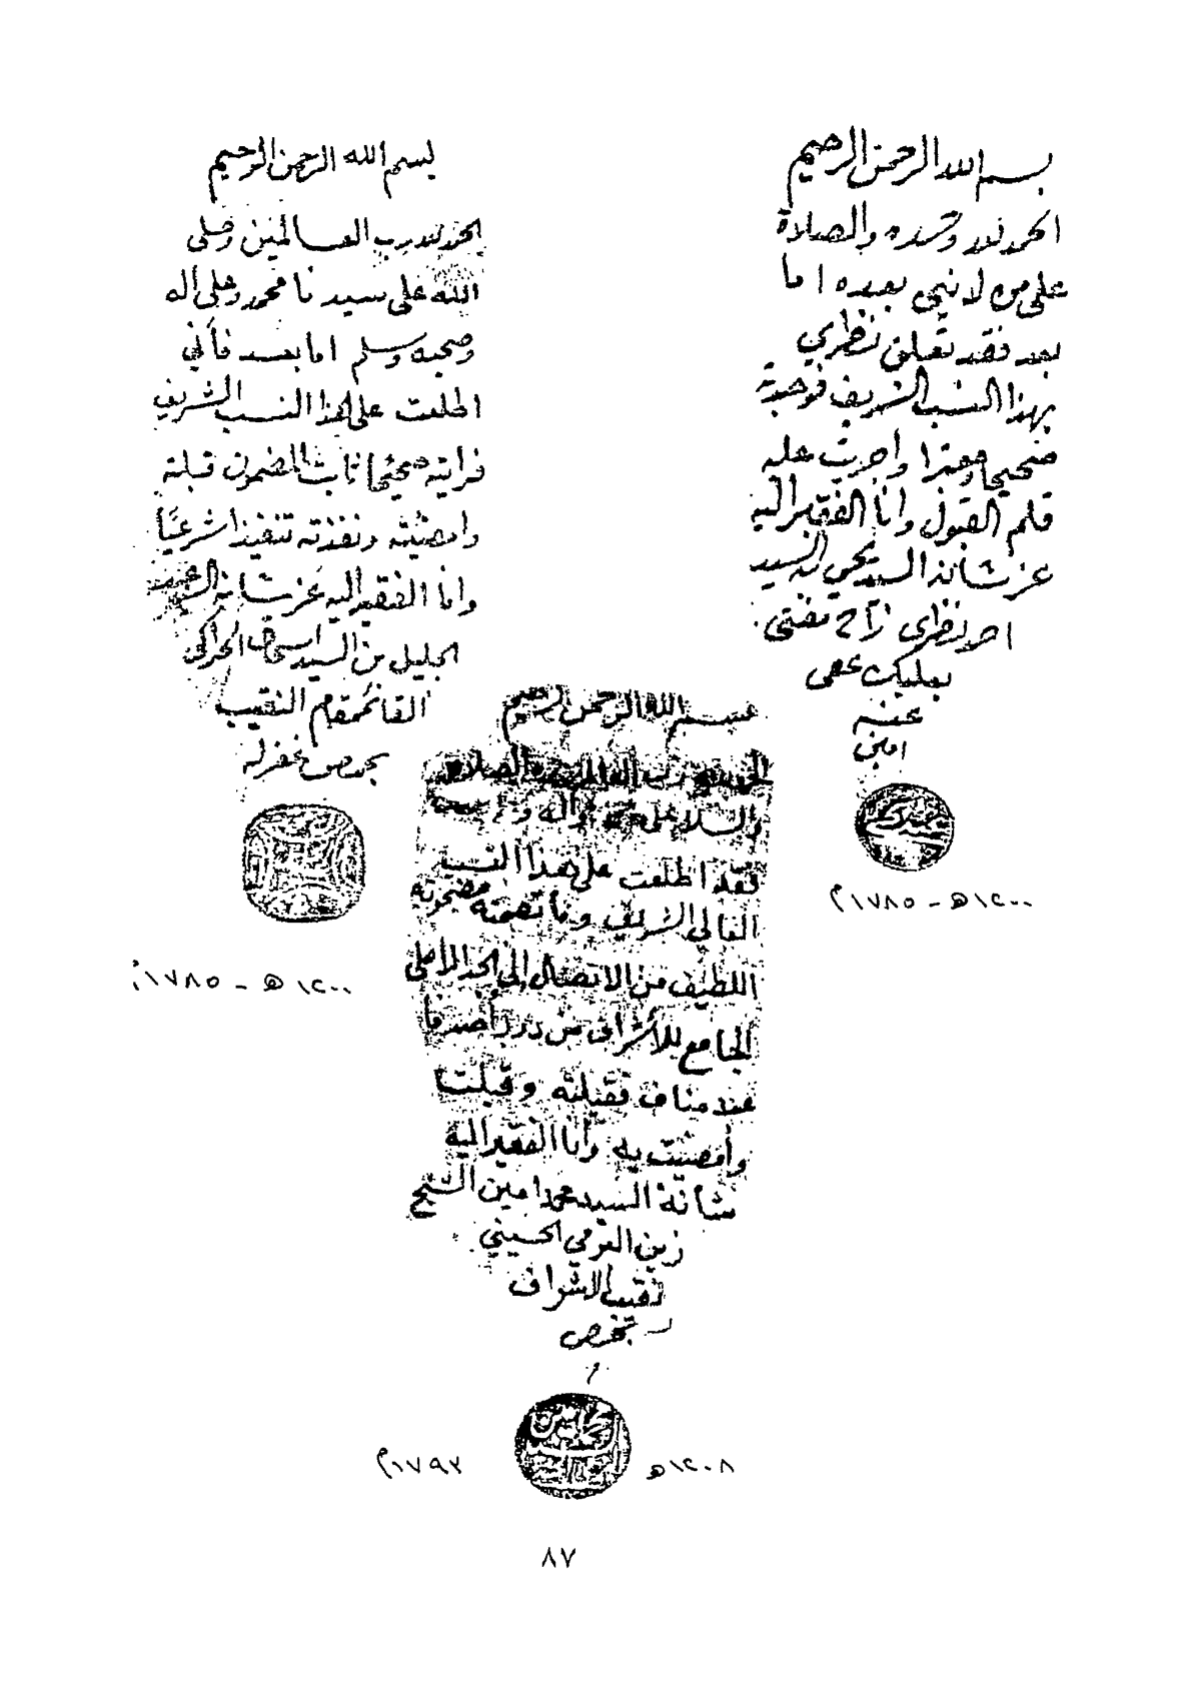 بسم الله الرحمن الرحيم
الحمد لله وحده والصلاة
على من لا نبي بعده اما
بعد فقد تعلق نظري
بهذا النسب الشريف فوجدته
صحيحا معتبرا واجريت عليه
قلم القبول وانا الفقير اليه
عز شأنه السيد يحيى السيد
مفتى
بعلبك عفى
عنه
امين
١٢٠٠هـ - ١٧٨٥م
بسم الله الرحمن الرحيم
الحمد لله رب العالمين وصلى
الله على سيدنا محمد وعلى اله
وصحبه وسلم اما بعد فأني
اطلعت على هذا النسب الشريف
فرايته صحيحا ثابت المضمون قبلته
وامضيته ونفذته تنفيذا شرعيًا
وانا الفقير اليه عز شانه السيد عبد
الجليل بن السيد اسحاق الحراكي
القائمقام النقيب
بحمص غفر له
١٢٠٠هـ - ١٧٨٥م
بسم الله الرحمن الرحيم
الحمد لله رب العالمين والصلاة
والسلام على محمد وآله وصحبه
فقد اطلعت على هذا النسب
العالي الشريف وما تضمنه مضمونه
اللطيف من الاتصال إلى الجد الأعلى
الجامع للأشراف من درر أصداف
عبد مناف فقبلته وقبلت
وأمضيت به وأنا الفقير اليه
شأنه السيد محمد امين الشيخ
زين الحسيني
نقيب الاشراف
١٢٠٨هـ
١٧٩٢م
٨٧